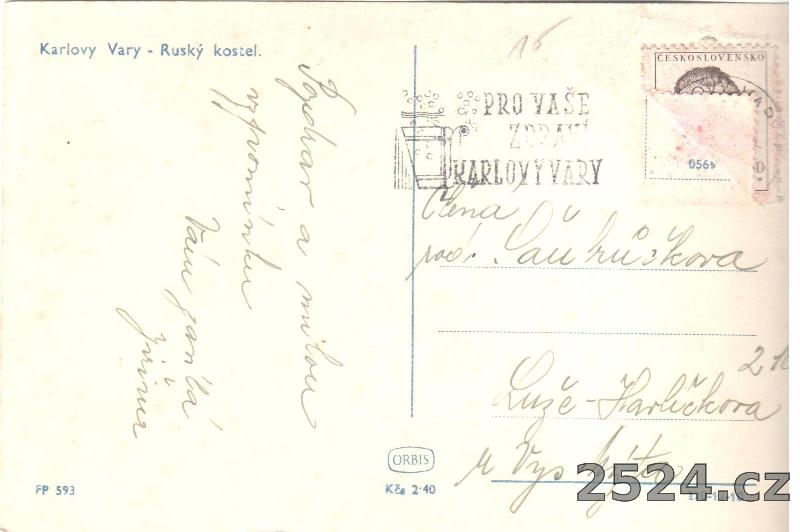 Karlovy Vary - Ruský kostel.
Pozdrav a milou
vzpomínku
Vám zasílá
Jiřina
FP 593
ORBIS
Kčs 2·40
16
ČESKOSLOVENSKO
056
PRO VAŠE
ZDRAVÍ
KARLOVY VARY
Ctěná
rod.
Luže-Harlíčkova
u Vys Mýta
2524.cz